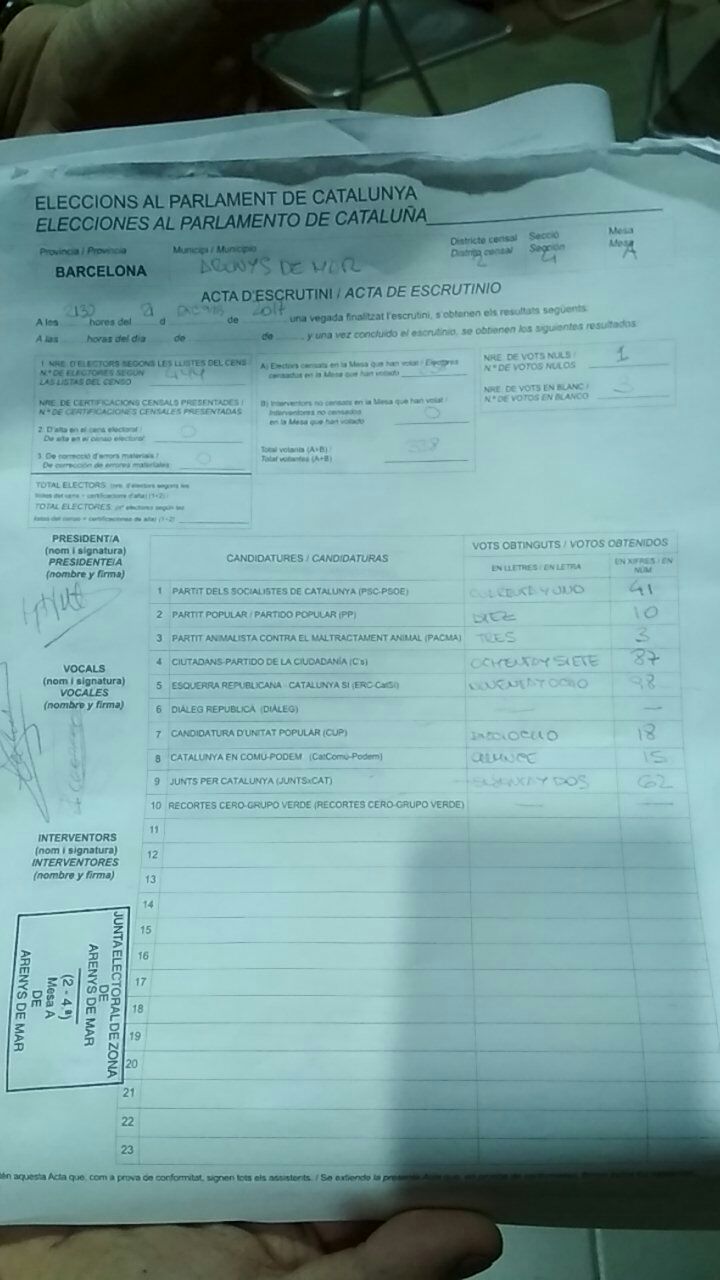 ELECCIONS AL PARLAMENT DE CATALUNYA
ELECCIONES AL PARLAMENTO DE CATALUÑA
Província / Provincia Municipi / Municipio Districte censal Secció Mesa
Distrito censal Sección Mesa
BARCELONA ARENYS DE MAR 2 4 A
ACTA D'ESCRUTINI / ACTA DE ESCRUTINIO
A les 2130 hores del 21 d de 2017 una vegada finalitzat l'escrutini, s'obtenen els resultats següents:
A las horas del día de de , y una vez concluido el escrutinio, se obtienen los siguientes resultados:
1. NRE. D'ELECTORS SEGONS LES LLISTES DEL CENS
N.º DE ELECTORES SEGÚN
LAS LISTAS DEL CENSO
NRE. DE CERTIFICACIONS CENSALS PRESENTADES /
N.º DE CERTIFICACIONES CENSALES PRESENTADAS
2. D'alta en el cens electoral / 0
De alta en el censo electoral
3. De correcció d'errors materials / 0
De corrección de errores materiales
TOTAL ELECTORS: (nre. d'electors segons les
llistes del cens + certificacions d'alta) (1+2) /
TOTAL ELECTORES: (nº electores según las
listas del censo + certificaciones de alta) (1+2)
A) Electors censats en la Mesa que han votat / Electores
censados en la Mesa que han votado
B) Interventors no censats en la Mesa que han votat /
Interventores no censados 0
en la Mesa que han votado
Total votants (A+B) / 338
Total votantes (A+B)
NRE. DE VOTS NULS / 1
N.º DE VOTOS NULOS
NRE. DE VOTS EN BLANC / 3
N.º DE VOTOS EN BLANCO
PRESIDENT/A
(nom i signatura)
PRESIDENTE/A
(nombre y firma)
VOCALS
(nom i signatura)
VOCALES
(nombre y firma)
INTERVENTORS
(nom i signatura)
INTERVENTORES
(nombre y firma)
CANDIDATURES / CANDIDATURAS VOTS OBTINGUTS / VOTOS OBTENIDOS
EN LLETRES / EN LETRA EN XIFRES / EN NÚM
1 PARTIT DELS SOCIALISTES DE CATALUNYA (PSC-PSOE) 41
2 PARTIT POPULAR / PARTIDO POPULAR (PP) DIEZ 10
3 PARTIT ANIMALISTA CONTRA EL MALTRACTAMENT ANIMAL (PACMA) TRES 3
4 CIUTADANS-PARTIDO DE LA CIUDADANÍA (C's) OCHENTA Y SIETE 87
5 ESQUERRA REPUBLICANA - CATALUNYA SÍ (ERC-CatSí) NOVENTA Y OCHO 98
6 DIÀLEG REPUBLICÀ (DIÀLEG) — —
7 CANDIDATURA D'UNITAT POPULAR (CUP) 18
8 CATALUNYA EN COMÚ-PODEM (CatComú-Podem) QUINCE 15
9 JUNTS PER CATALUNYA (JUNTSxCAT) SESENTA Y DOS 62
10 RECORTES CERO-GRUPO VERDE (RECORTES CERO-GRUPO VERDE) — —
11
12
13
14
15
16
17
18
19
20
21
22
23
JUNTA ELECTORAL DE ZONA
DE
ARENYS DE MAR
(2 - 4.ª)
Mesa A
DE
ARENYS DE MAR
aquesta Acta que, com a prova de conformitat, signen tots els assistents. / Se extiende la